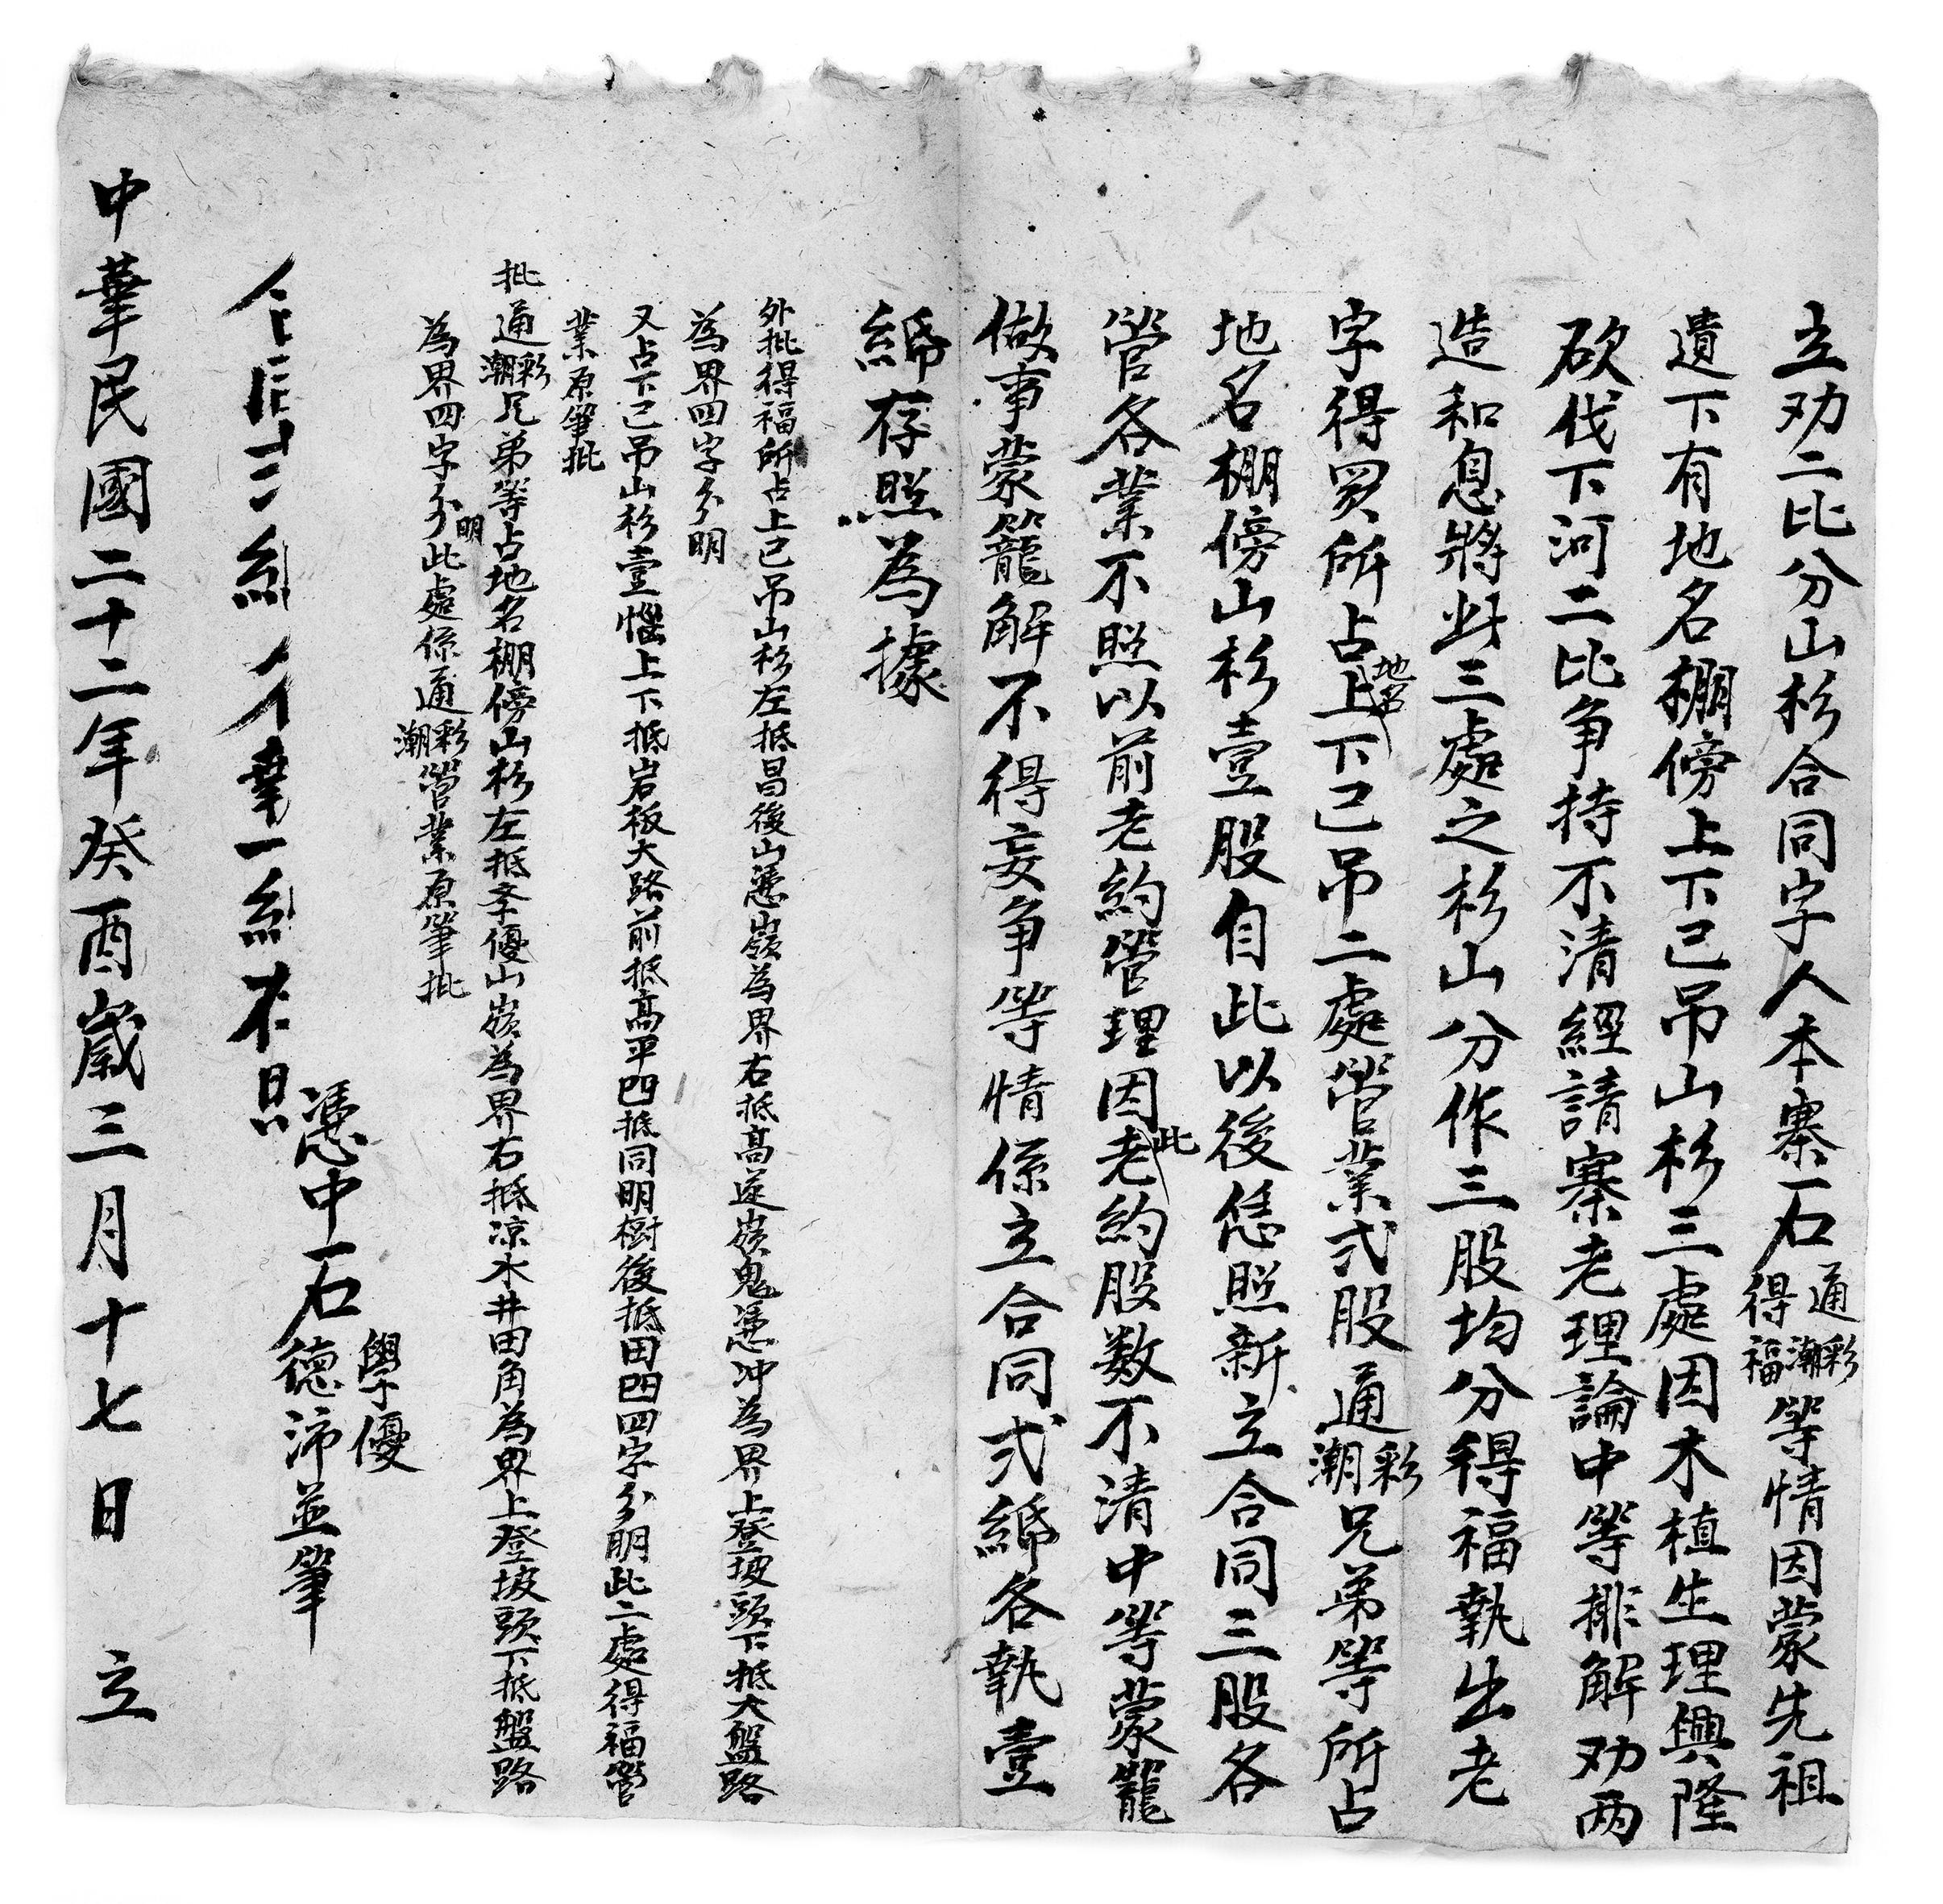 立劝二比分山杉合同字人本寨石通彩潮得福等情因蒙先祖
遺下有地名棚傍上下已吊山杉三處因木植生理興隆
砍伐下河二比争持不清經請寨老理論中等排解劝两
造和息將此三處之杉山分作三股均分得福執出老
字得買所占地名上下已吊二處管業弍股通彩潮兄弟等所占
地名棚傍山杉壹股自此以後恁照新立合同三股各
管各業不照以前老約管理因此老約股数不清中等蒙籠
做事蒙籠解不得妄争等情係立合同弍紙各執壹
紙存照為據
外批得福所占上已吊山杉左抵昌後山憑嶺為界右抵高遂嶺鬼憑冲為界上登坡頭下抵大盤路
為界四字分明
又占下已吊山杉壹㘭上下抵岩板大路前抵高平凹抵同明樹後抵田凹四字分明此二處得福管
業原筆批
批通彩潮兄弟等占地名棚傍山杉左抵李優山嶺為界右抵凉水井田角為界上登坡頭下抵盤路
為界四字分明此處係通彩潮管業原筆批
憑中石學優德沛並筆
中華民國二十二年癸酉歲三月十七日 立